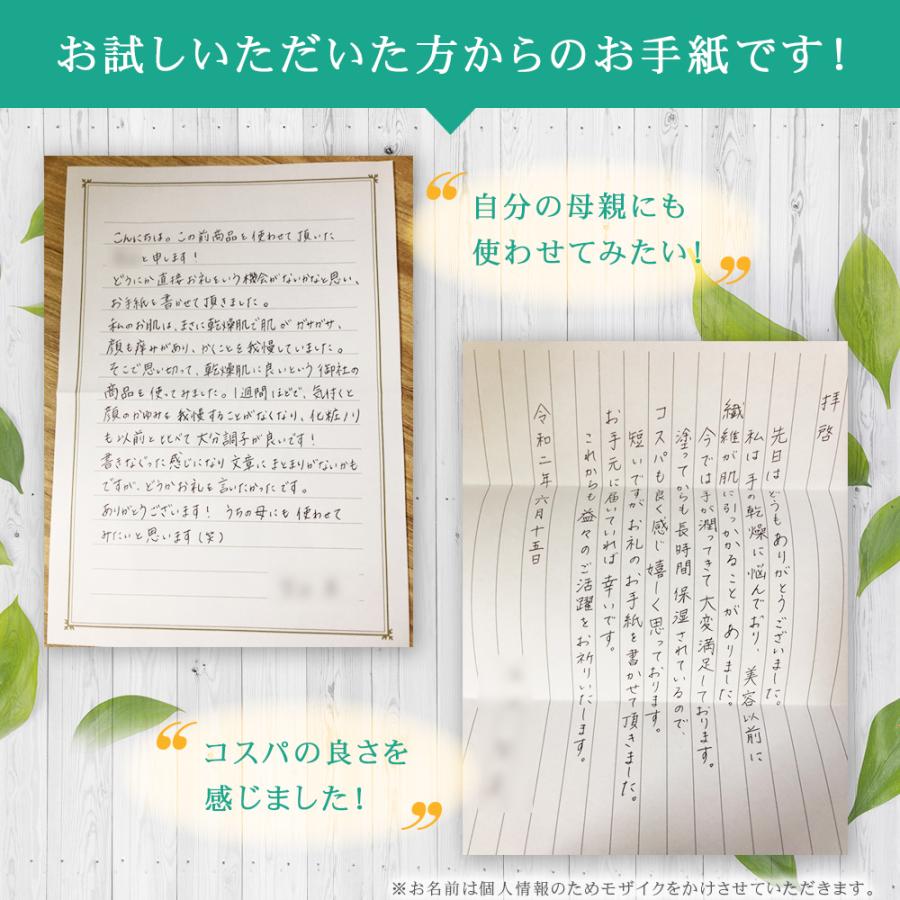 お試しいただいた方からのお手紙です!
自分の母親にも
使わせてみたい!
こんにちは。この前商品を使わせて頂いた
と申します!
どうにか直接お礼をいう機会がないかなと思い、
お手紙を書かせて頂きました。
私のお肌は、まさに乾燥肌で肌がガサガサ、
顔も痒みがあり、かくことを我慢していました。
そこで思い切って、乾燥肌に良いという御社の
商品を使ってみました。1週間ほどで、気付くと
顔のかゆみを我慢することがなくなり、化粧ノリ
も以前と比べて大分調子が良いです!
書きなぐった感じになり文章にまとまりがないかも
ですが、どうかお礼を言いたかったです。
ありがとうございます! うちの母にも使わせて
みたいと思います(笑)
拝啓
先日はどうもありがとうございました。
私は手の乾燥に悩んでおり、美容以前に
繊維が肌に引っかかることがありました。
今では手が潤ってきて大変満足しております。
塗ってからも長時間保湿されているので、
コスパも良く感じ嬉しく思っております。
短いですがお礼のお手紙を書かせて頂きました。
お手元に届いていれば幸いです。
これからも益々のご活躍をお祈りいたします。
令和二年六月十五日
コスパの良さを
感じました!
※お名前は個人情報のためモザイクをかけさせていただきます。